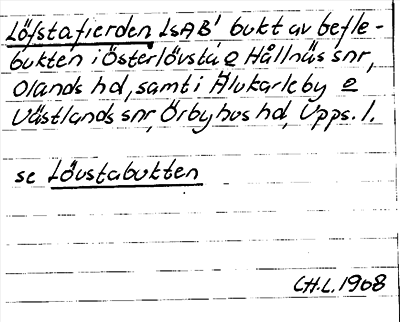 Löfstafierden LSAB' bukt av befle-
bukten i Österlövsta o Hållnäs snr,
Olands hd, samt i Älvkarleby o
Västlands snr, Örbyhus hd, Upps. l.
se Lövstabukten
CH.L. 1968